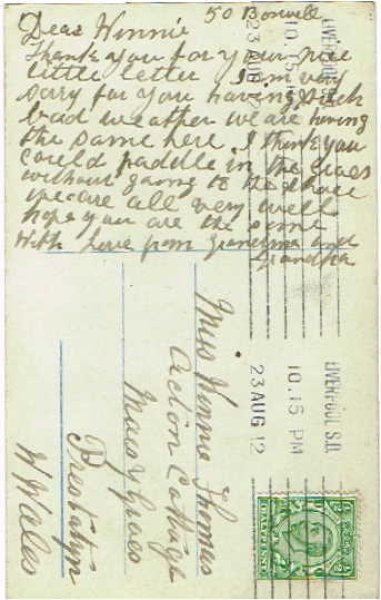 50 Boswell
Dear Winnie
Thank you for your nice
little letter I am very
sorry for you having such
bad weather we are having
the same here I think you
could paddle in the
without going to the shore
we are all very well
hope you are the same
With love from grandma and
Grandpa
LIVERPOOL S.O.
10.15 PM
23 AUG 12
LIVERPOOL S.O.
10.15 PM
23 AUG 12
Miss Winnie Thomas
Acton Cottage
Maes y Groes
Prestatyn
N Wales
HALFPENNY